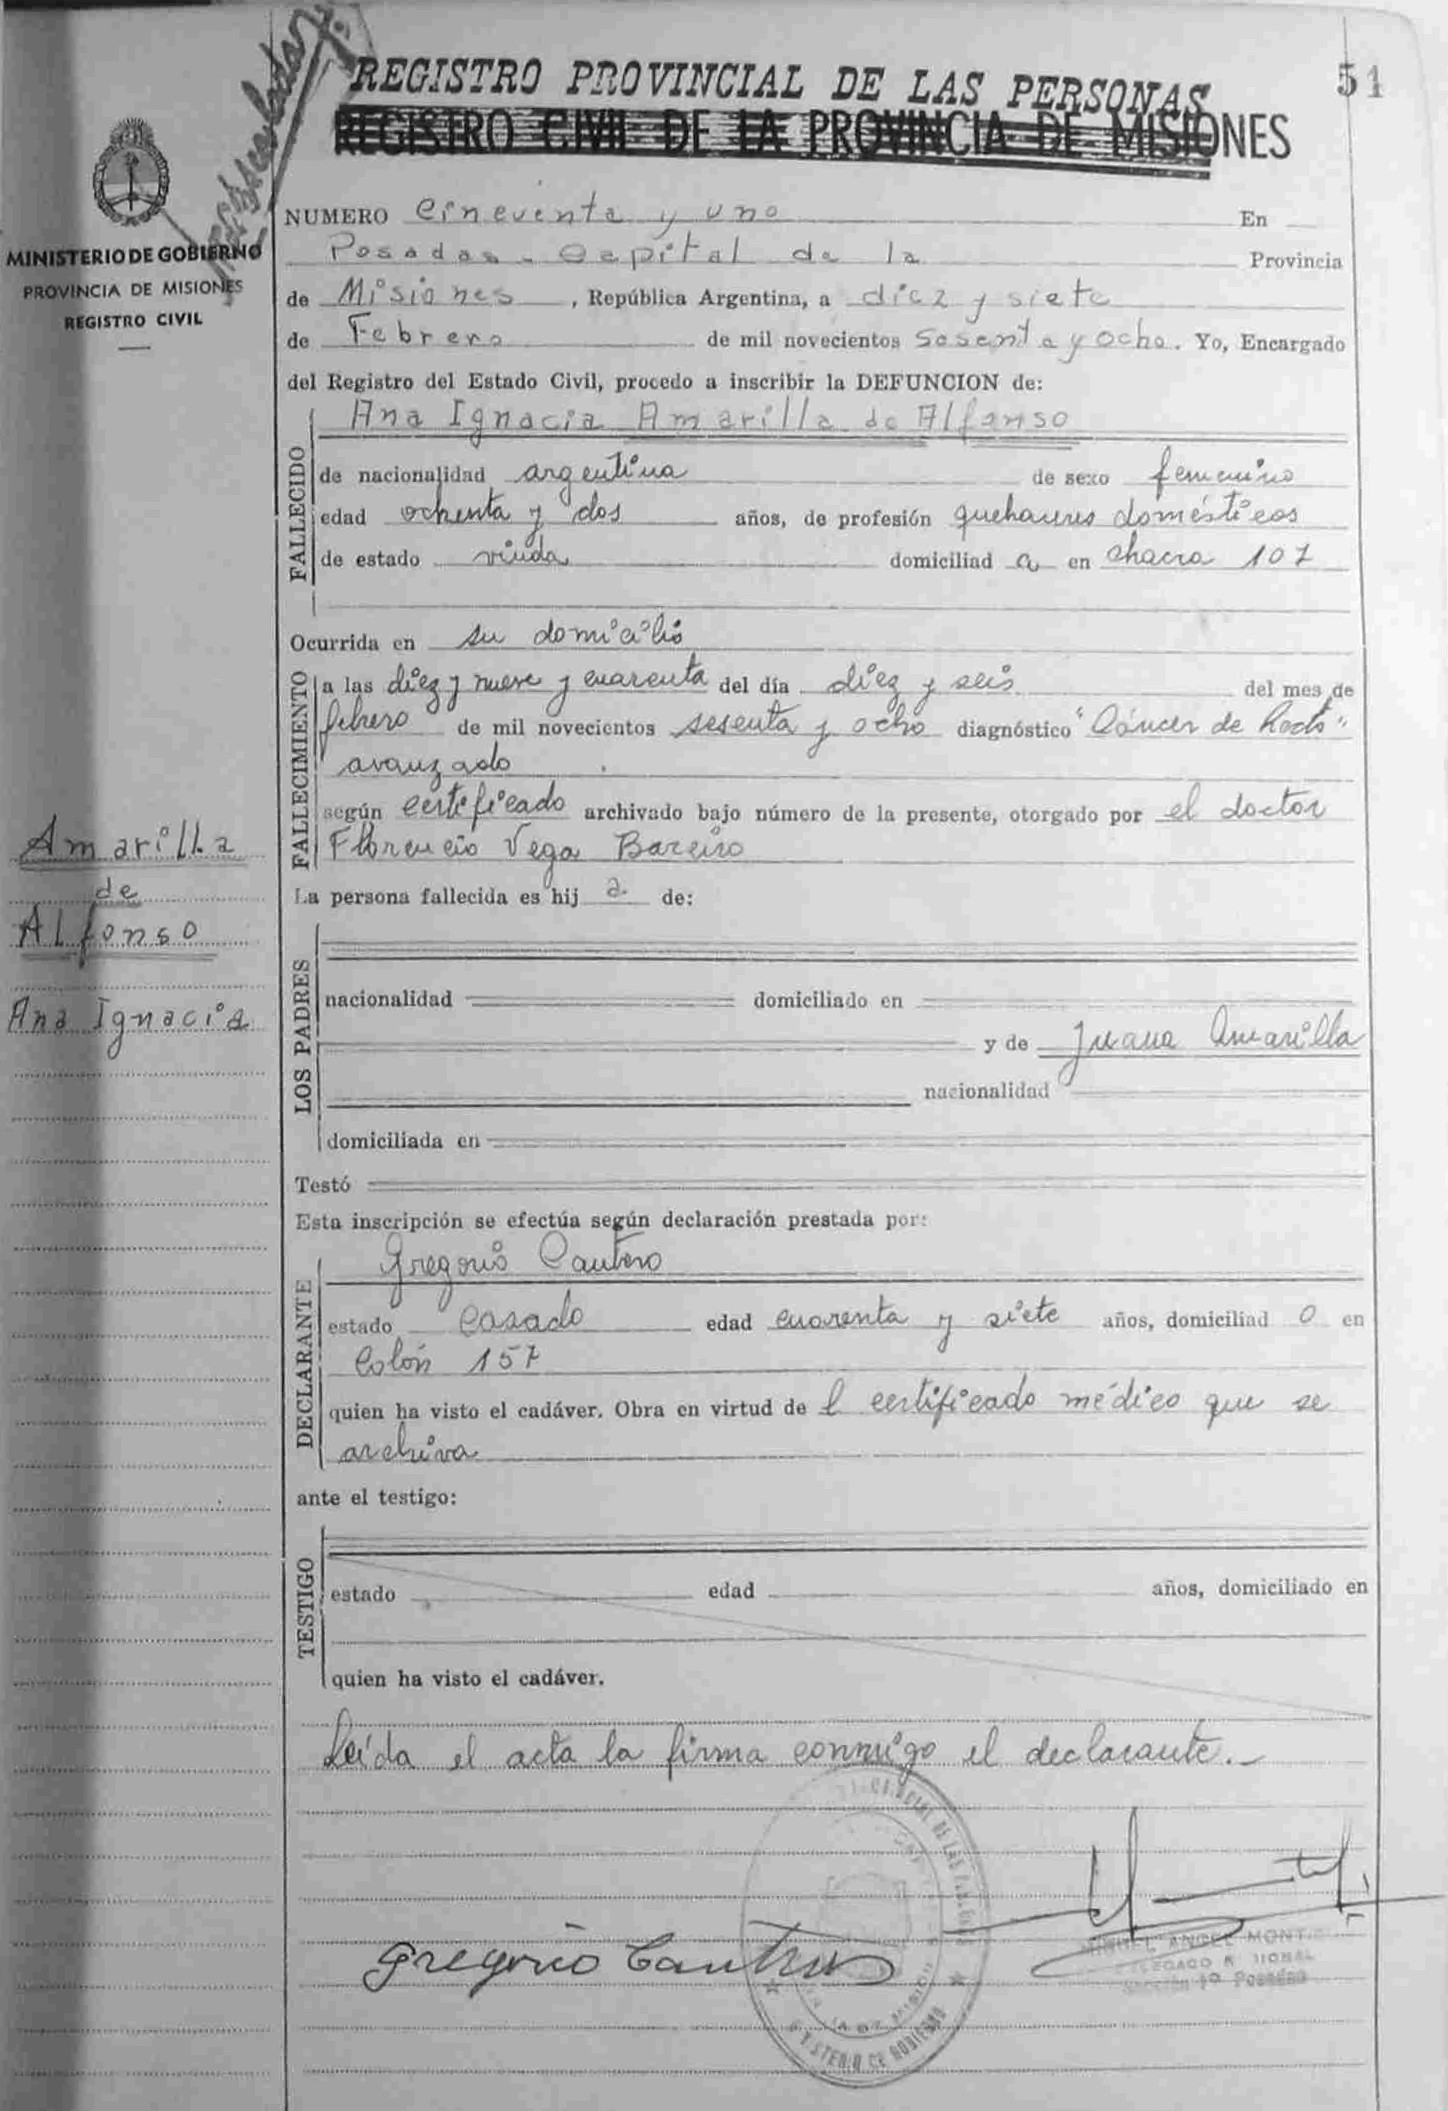 51
REGISTRO PROVINCIAL DE LAS PERSONAS
REGISTRO CIVIL DE LA PROVINCIA DE MISIONES
MINISTERIO DE GOBIERNO
PROVINCIA DE MISIONES
REGISTRO CIVIL
NUMERO Cincuenta y uno En
Posadas - Capital de la Provincia
de Misiones, República Argentina, a diez y siete
de Febrero de mil novecientos Sesenta y ocho. Yo, Encargado
del Registro del Estado Civil, procedo a inscribir la DEFUNCION de:
FALLECIDO
Ana Ignacia Amarilla de Alfonso
de nacionalidad argentina de sexo femenino
edad ochenta y dos años, de profesión quehaceres domésticos
de estado viuda domiciliad a en chacra 107
Ocurrida en su domicilio
FALLECIMIENTO
a las diez y nueve y cuarenta del día diez y seis del mes de
febrero de mil novecientos sesenta y ocho diagnóstico "Cáncer de Recto"
avanzado
según certificado archivado bajo número de la presente, otorgado por el doctor
Florencio Vega Bareiro
La persona fallecida es hij a de:
Amarilla
de
Alfonso
Ana Ignacia
LOS PADRES
nacionalidad domiciliado en
y de Juana Amarilla
nacionalidad
domiciliada en
Testó
Esta inscripción se efectúa según declaración prestada por:
DECLARANTE
Gregorio Cantero
estado Casado edad cuarenta y siete años, domiciliad o en
Colón 157
quien ha visto el cadáver. Obra en virtud de l certificado médico que se
archiva
ante el testigo:
TESTIGO
estado edad años, domiciliado en
quien ha visto el cadáver.
Leída el acta la firma conmigo el declarante.-
Gregorio Cantero